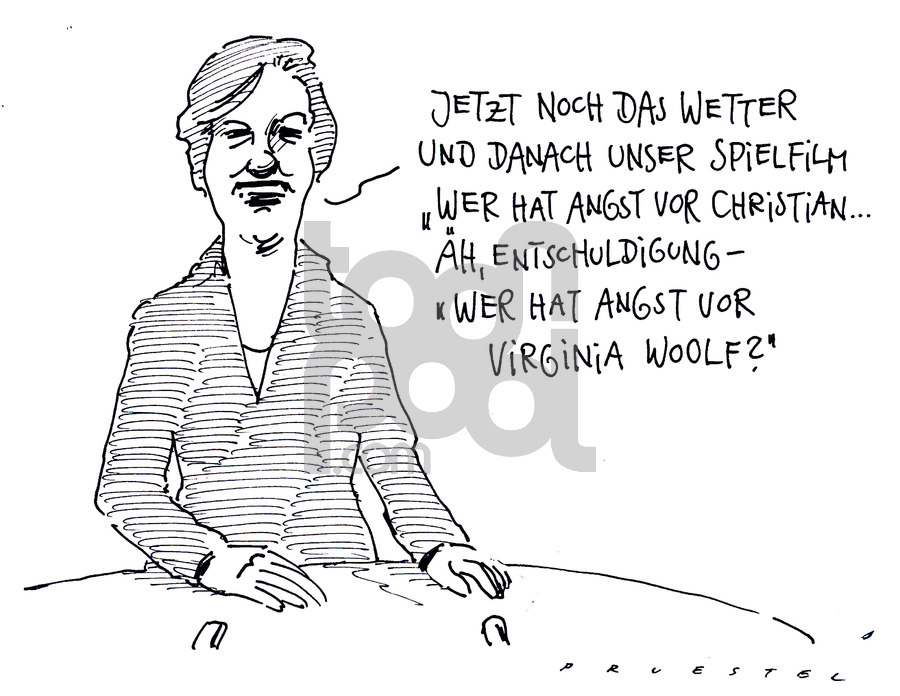 JETZT NOCH DAS WETTER
UND DANACH UNSER SPIELFILM
„WER HAT ANGST VOR CHRISTIAN...
ÄH, ENTSCHULDIGUNG –
„WER HAT ANGST VOR
VIRGINIA WOOLF?"
toonpool
.com
PRUESTEL